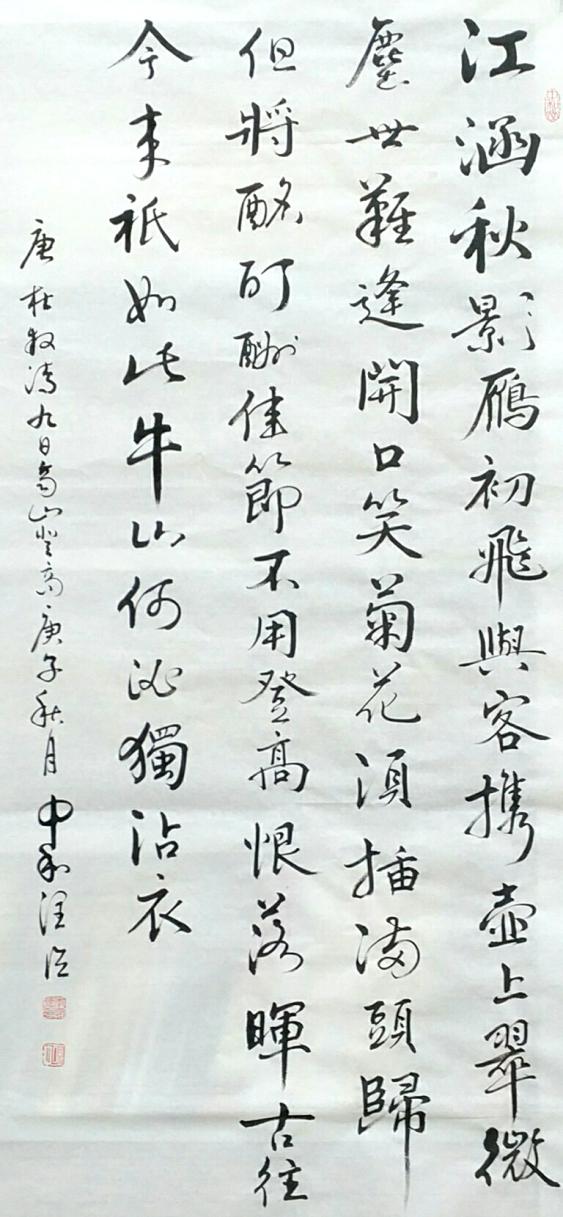 江涵秋影鴈初飛與客携壺上翠微
塵世難逢開口笑菊花須插滿頭歸
但將酩酊酬佳節不用登高恨落暉古往
今來祇如此牛山何必獨沾衣
唐杜牧詩九日齊山登高庚子秋月中和